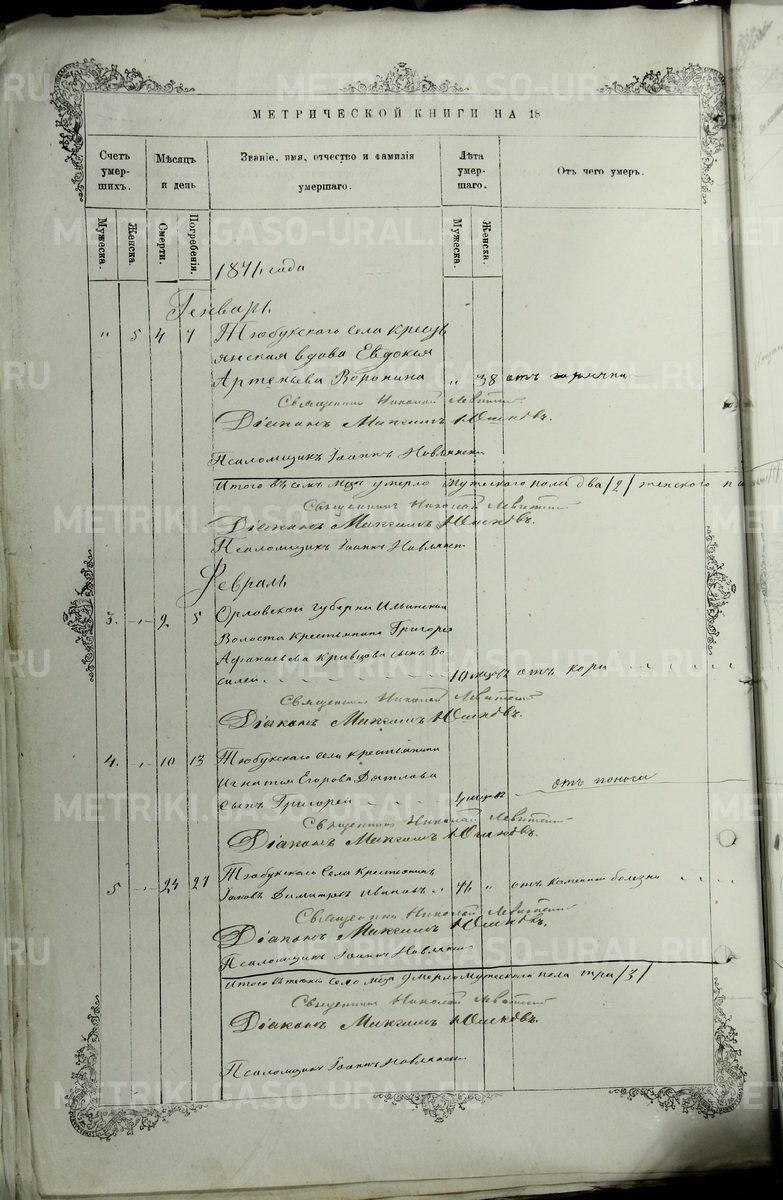 МЕТРИЧЕСКОЙ КНИГИ НА 18
Счет умерших.
Мѣсяцъ и день
Званіе, имя, отчество и фамилія умершаго.
Лѣта умершаго.
Отъ чего умеръ.
Мужеска.
Женска.
Смерти.
Погребенія.
Мужеска.
Женска.
года
Генварь
" 5 4 7 Тюбукскаго села кресть
янская вдова Евдокия
Артемьева Воронина " 38 отъ горячки
Священникъ Николай Левитский
Діаконъ Максимъ Юшковъ.
Псаломщикъ Іоаннъ
Итого въ семъ мцѣ умерло мужескаго пола два /2/ женскаго
Священникъ Николай Левитский
Діаконъ Максимъ Юшковъ.
Псаломщикъ Іоаннъ
Февраль
3. " 2. 5 Орловской губернии Ильинской
Волости крестьянина Григорія
Афанасьева Кривцова сынъ Ва
силей. 10 мцовъ отъ кори
Священникъ Николай Левитский
Діаконъ Максимъ Юшковъ.
4. " 10 13 Тюбукскаго села крестьянина
Игнатия Егорова
сынъ Григорей отъ поноса
Священникъ Николай Левитский
Діаконъ Максимъ Юшковъ.
5 " 24 27 Тюбукскаго Села Крестьянинъ
Іаковъ Димитріевъ Ивановъ 76 " отъ каменной болезни
Священникъ Николай Левитский
Діаконъ Максимъ Юшковъ.
Псаломщикъ Іоаннъ
Итого въ течении сего мца умерло мужескаго пола три /3/
Священникъ Николай Левитский
Діаконъ Максимъ Юшковъ.
Псаломщикъ Іоаннъ
METRIKI.GASO-URAL.RU